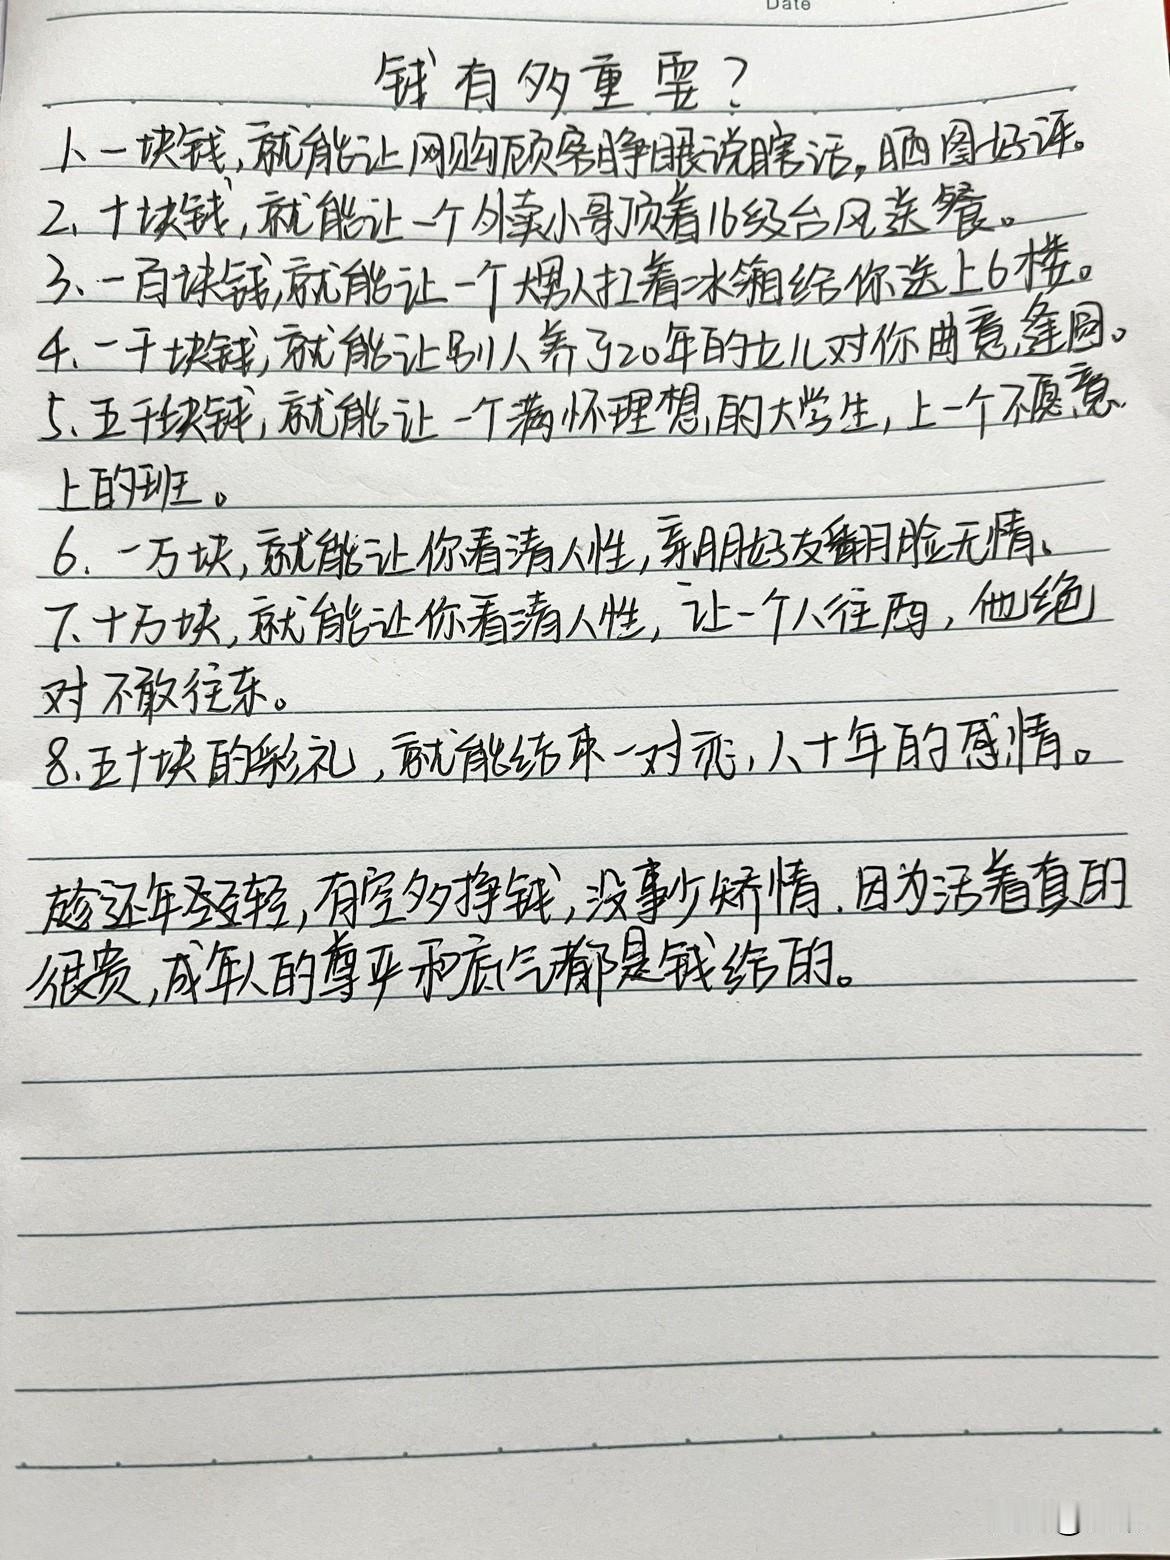 Date
钱有多重要？
1、一块钱，就能让网购顾客睁眼说瞎话，晒图好评。
2、十块钱，就能让一个外卖小哥顶着16级台风送餐。
3、一百块钱，就能让一个大男人扛着冰箱给你送上6楼。
4、一千块钱，就能让别人养了20年的女儿对你曲意逢圆。
5、五千块钱，就能让一个满怀理想的大学生，上一个不愿意
上的班。
6、一万块，就能让你看清人性，亲朋好友翻脸无情、
7、十万块，就能让你看清人性，让一个人往西，他绝
对不敢往东。
8、五十块的彩礼，就能结束一对恋人十年的感情。
趁还年轻，有空多挣钱，没事少矫情．因为活着真的
很贵，成年人的尊严和底气都是钱给的。